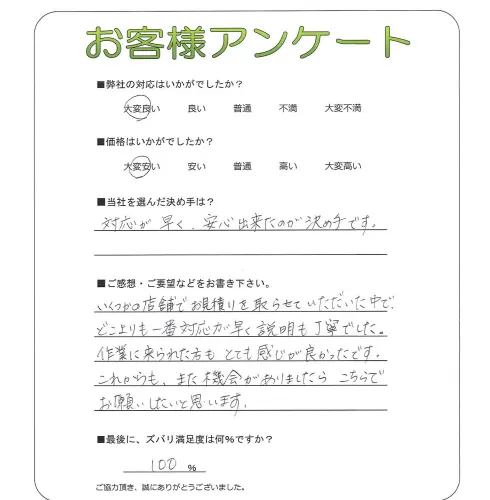 お客様アンケート
■弊社の対応はいかがでしたか？
大変良い　良い　普通　不満　大変不満
■価格はいかがでしたか？
大変安い　安い　普通　高い　大変高い
■当社を選んだ決め手は？
対応が早く、安心出来たのが決め手です。
■ご感想・ご要望などをお書き下さい。
いくつかの店舗でお見積りを取らせていただいた中で、
どこよりも一番対応が早く説明も丁寧でした。
作業に来られた方もとても感じが良かったです。
これからも、また機会がありましたらこちらで
お願いしたいと思います。
■最後に、ズバリ満足度は何％ですか？
100 %
ご協力頂き、誠にありがとうございました。